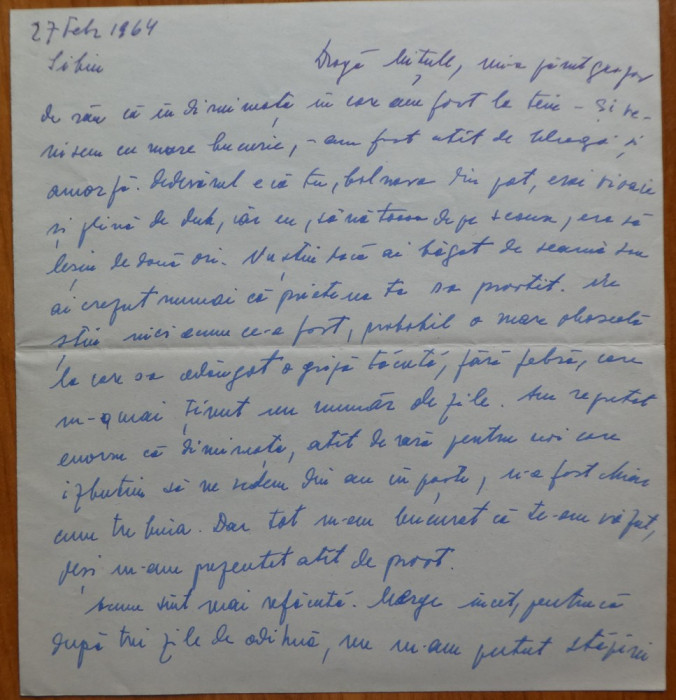 27 Febr 1964
Sibiu
Dragă Mițule, mi-a părut groaznic
de rău că în dimineața în care am fost la tine – și ve-
nisem cu mare bucurie, – am fost atît de bleagă și
amorfă. Adevărul e că tu, bolnava din pat, erai vioaie
și plină de duh, iar eu, sănătoasa de pe scaun, era să
leșin de două ori. Nu știu dacă ai băgat de seamă sau
ai crezut numai că prietena ta s-a prostit. Nu
știu nici acum ce-a fost, probabil o mare oboseală
la care s-a adăugat o gripă tăcută, fără febră, care
m-a mai ținut un număr de zile. Am regretat
enorm că dimineața, atît de rară pentru noi care
izbutim să ne vedem din an în paște, n-a fost chiar
cum trebuia. Dar tot m-am bucurat că te-am văzut,
deși m-am prezentat atît de prost.
Acum sînt mai refăcută. Merge încet, pentrucă
după trei zile de odihnă, nu m-am putut stăpîni